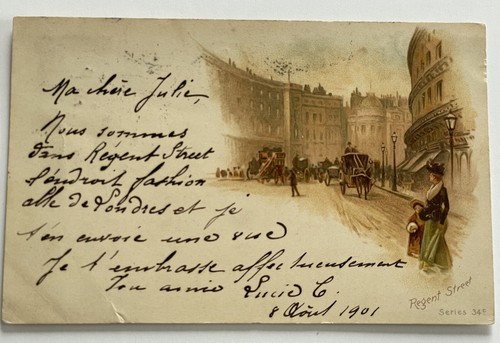 Ma chère Julie,
Nous sommes
dans Régent Street
l'endroit fashion
able de Londres et je
t'en envoie une vue
Je t'embrasse affectueusement
Ton amie Lucie C.
8 Août 1901
Regent Street
Series 34